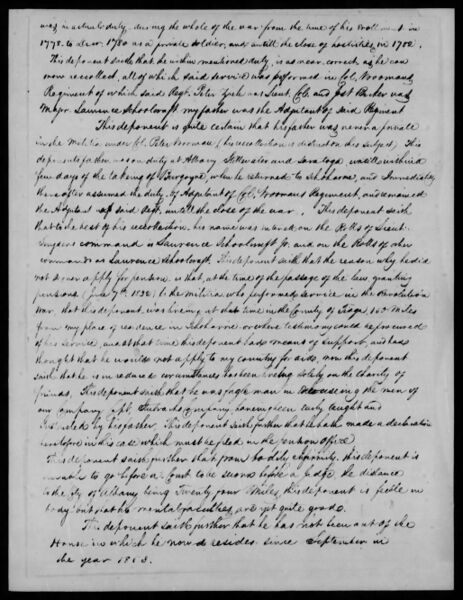 was in actual duty, during the whole of the war from the time of his enrollment in
1778, to Decr. 1780 as a private soldier, and untill the close of hostilities in 1782,
This deponent saith that the within mentioned duty, is as near, correct, as he can
now recollect, all of which said service was performed in Col. Vroomans
Regiment of which said Regt. Peter Zieh was Lieut. Col. and Jost Becker was
Major Laurence Schoolcraft my father was the Adjutant of said Regiment
This deponent is quite certain that his father was never a private
in the Militia under Col. Peter Vrooman (his recollection is distinct on this subject) This
deponents father, was on duty at Albany Stillwater and Saratoga, untill within a
few days of the taking of Burgoyne, when he returned to Schoharie, and Immediately
thereafter assumed the duty of Adjutant of Col. Vroomans Regiment, and remained
the Adjutant of said Regt. untill the close of the war. This deponent saith
that to the best of his recollection, his name was entered on the Rolls of Lieut.
Snyders command as Laurence Schoolcraft Jr. and on the Rolls of other
commands as Laurence Schoolcraft. This deponent saith that the reason why he did
not sooner apply for pension is that, at the time of the passage of the law granting
pensions (June 7th 1832) to the Militia who performed service in the Revolution
War, that this deponent, was living at that time in the County of Tioga, 100 miles
from my place of residence in Schoharie or where testimony could be procured
of his service, and at that time this deponent had means of support, and has
thought that he would not apply to my country for aid, now this deponent
saith that he is in reduced circumstances has been living solely on the charity of
friends, This deponent saith that he was fugle man in exercising the men of
our company, Capt. Stubrahs company, having been early taught and
instructed by his father. This deponent saith further that he hath made a declaration
heretofore in this case which must be filed in the pension office
This deponent saith further that from bodily infirmity, this deponent is
unable to go before a Court to be sworn before a Judge the distance
to the City of Albany being Twenty four Miles, this deponent is feeble in
body but not his mental faculties, are yet quite good.
This deponent saith further that he has not been out of the
House in which he now resides since September in
the year 1853.